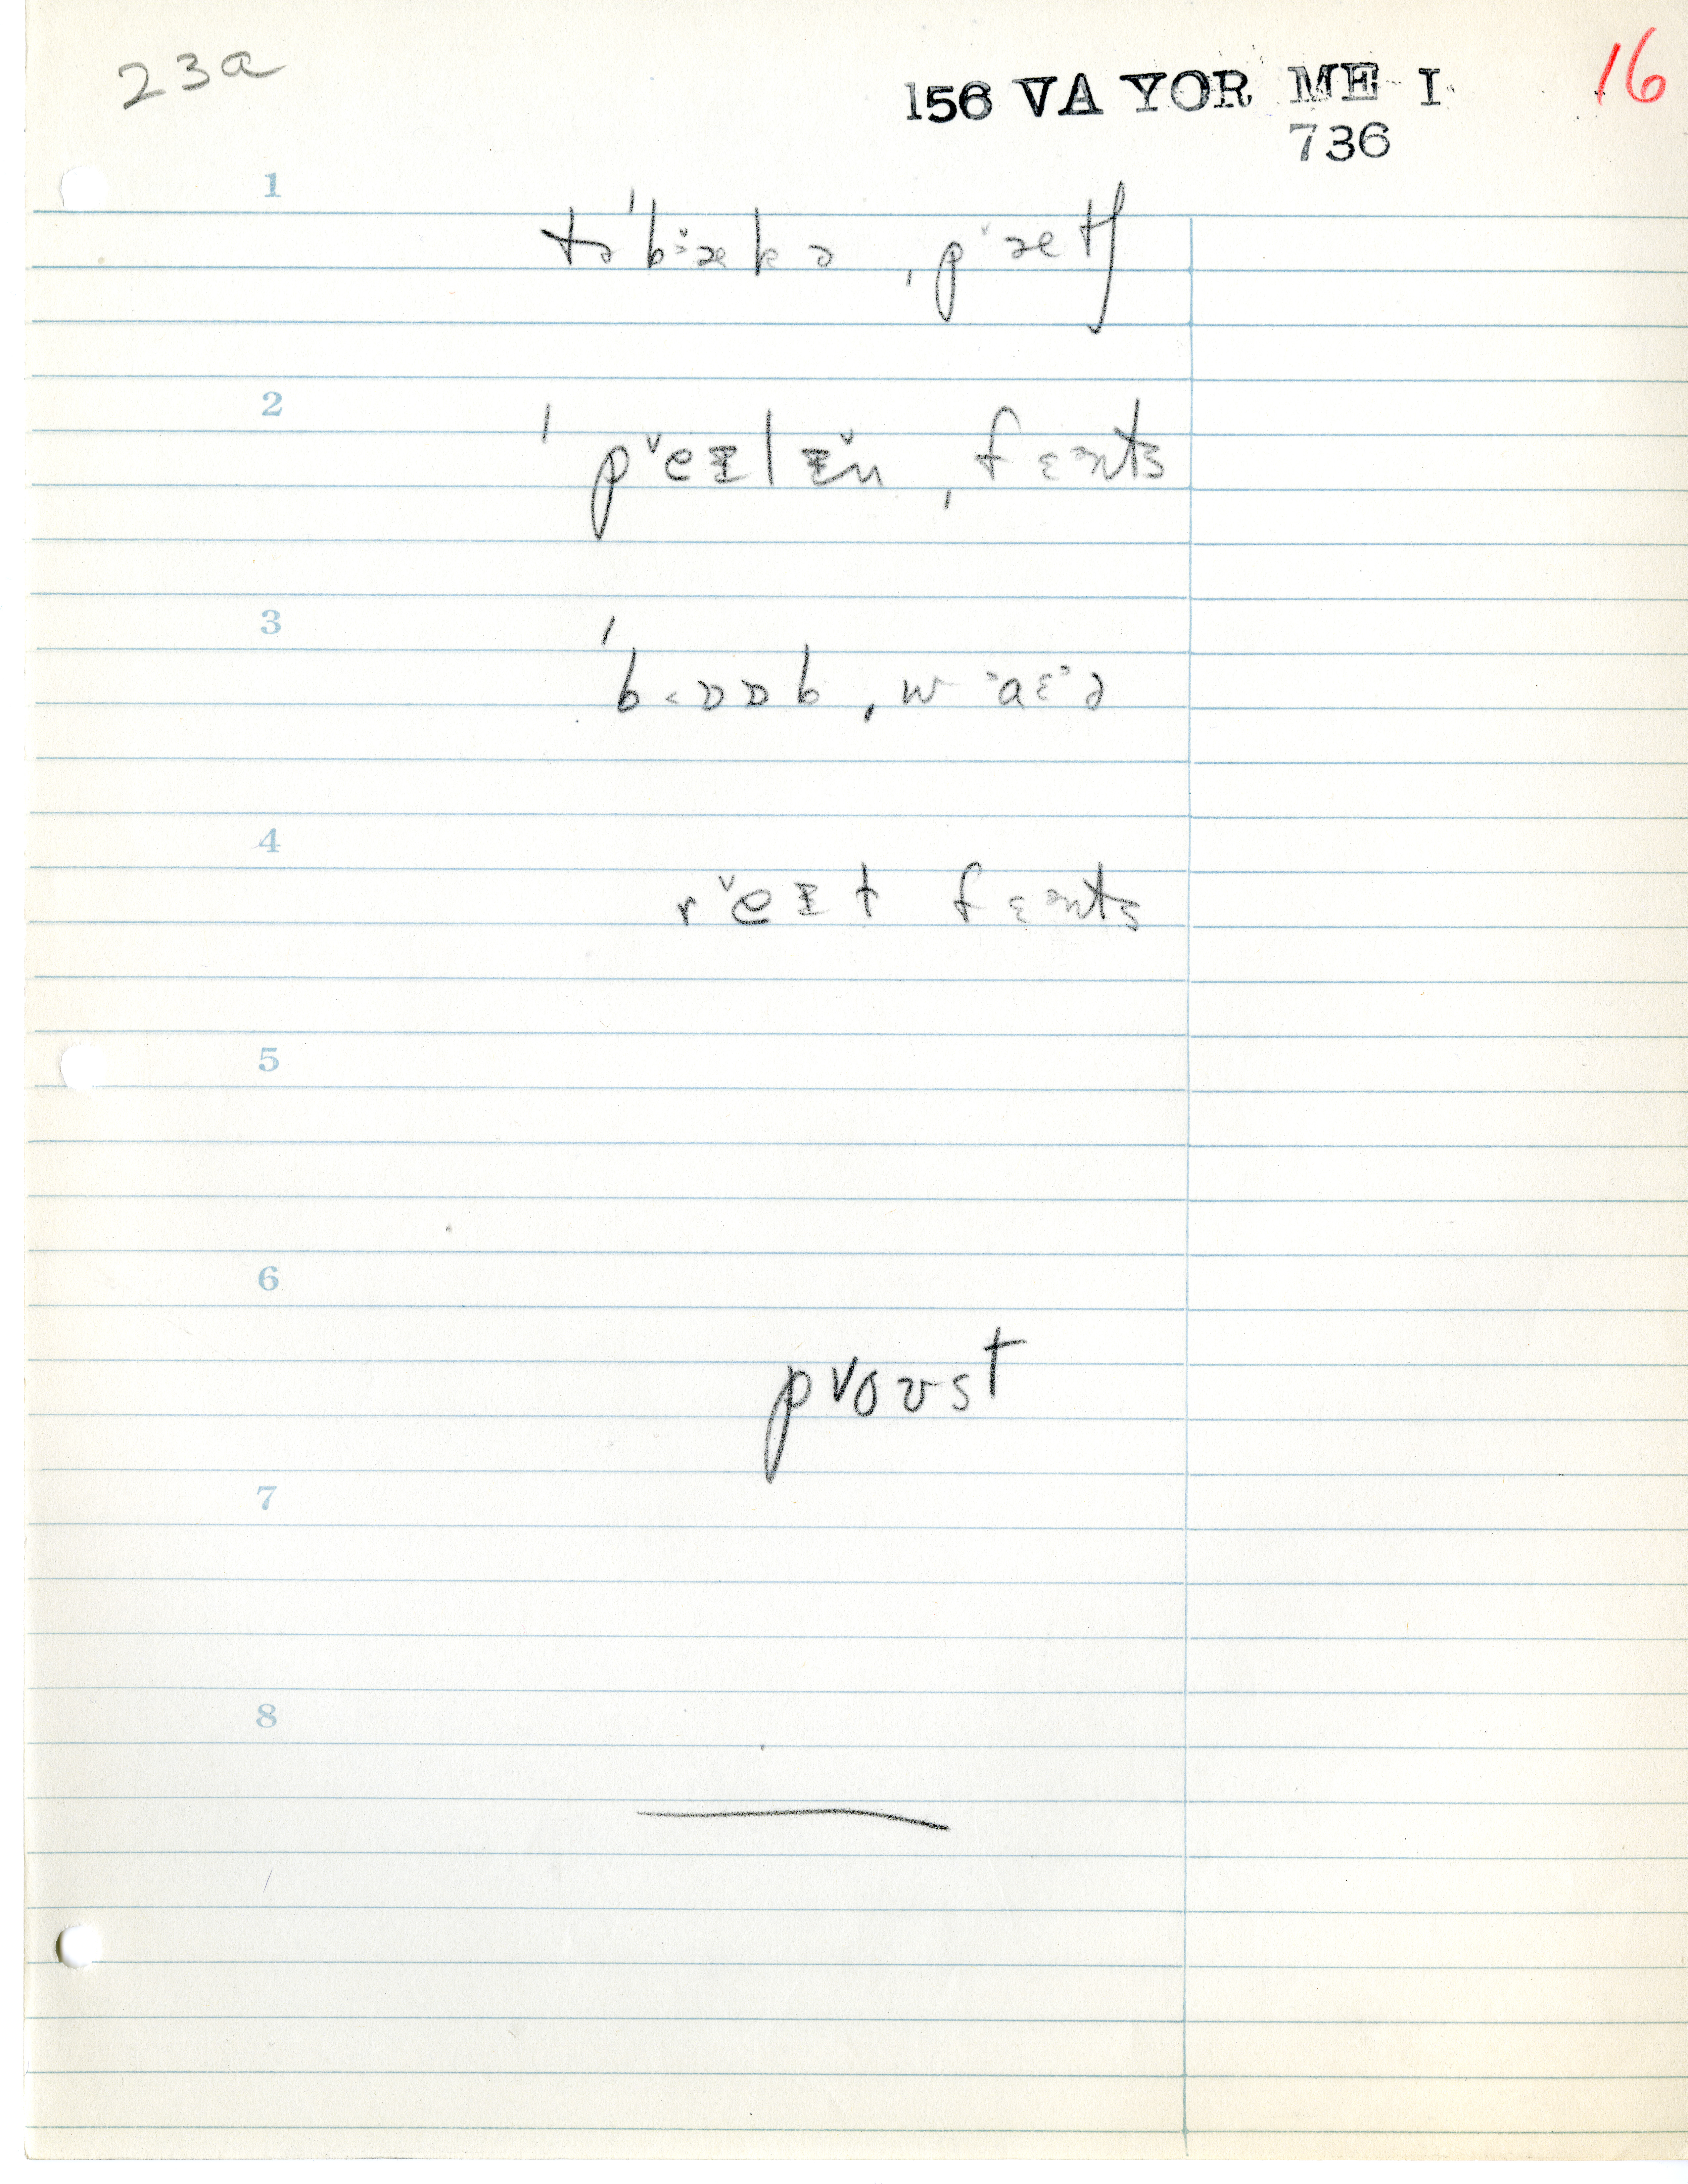 23a
156 VA YOR ME I
16
736
1
tə'bæ̌kə ˌpæ̌tʃ
2
'pěɪlɪ̌n ˌfɛənts
3
'bɒɒb ˌwaɛə
4
rěɪt fɛənts
5
6
pvoʊst
7
8